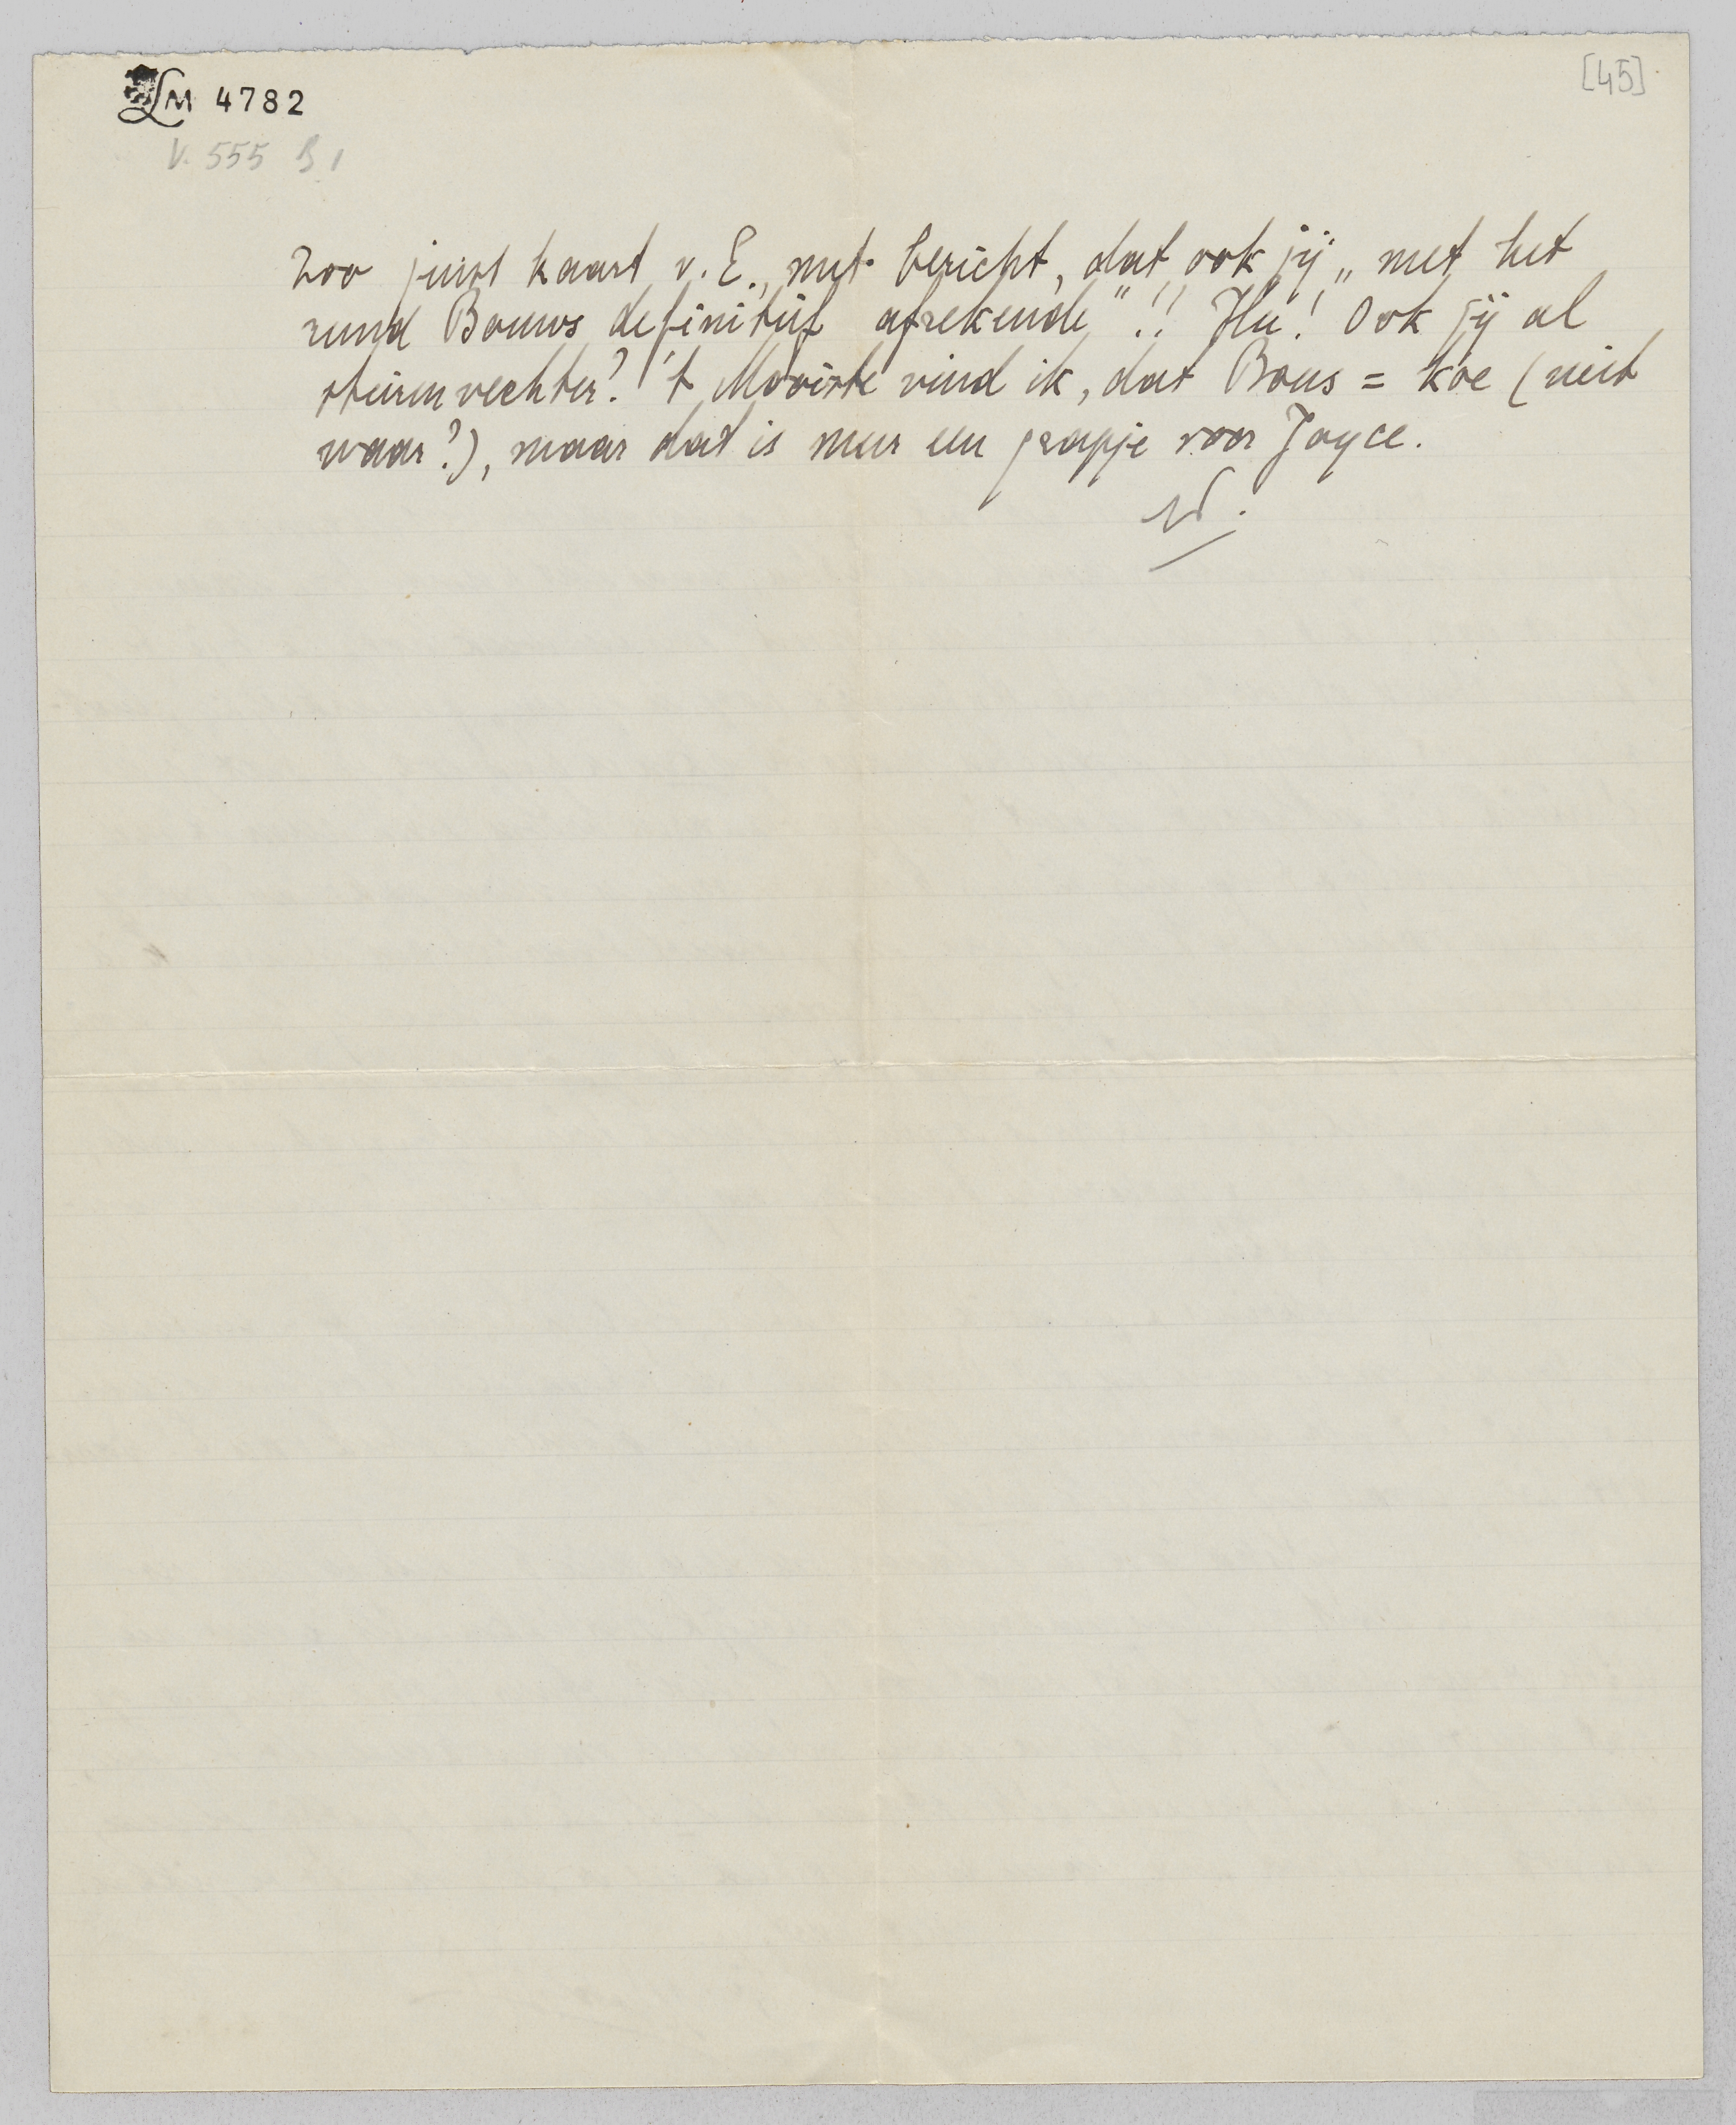 LM 4782
[45]
V. 555 B 1
Zoo juist kaart v. E., met bericht, dat ook jij „met het
rund Bouws definitief afrekende"!! Hu! Ook jij al
stierenvechter? 't Mooiste vind ik, dat Bous = koe (niet
waar?), maar dat is meer een grapje voor Joyce.
W.